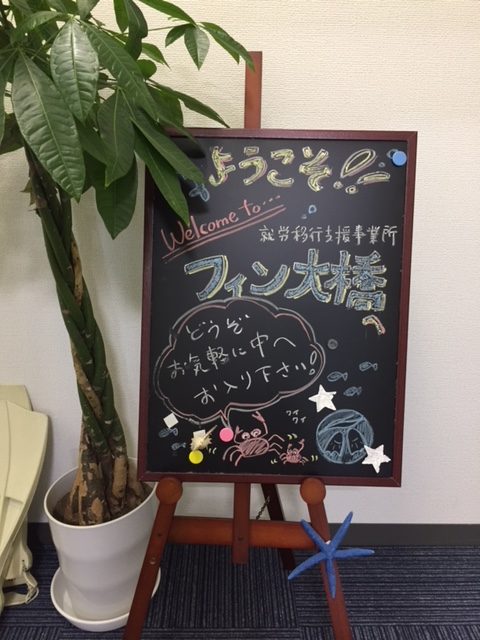 ようこそ!!
Welcome to...
就労移行支援事業所
フィン大橋
へ
どうぞ
お気軽に中へ
お入り下さい!
ワイ
ワイ